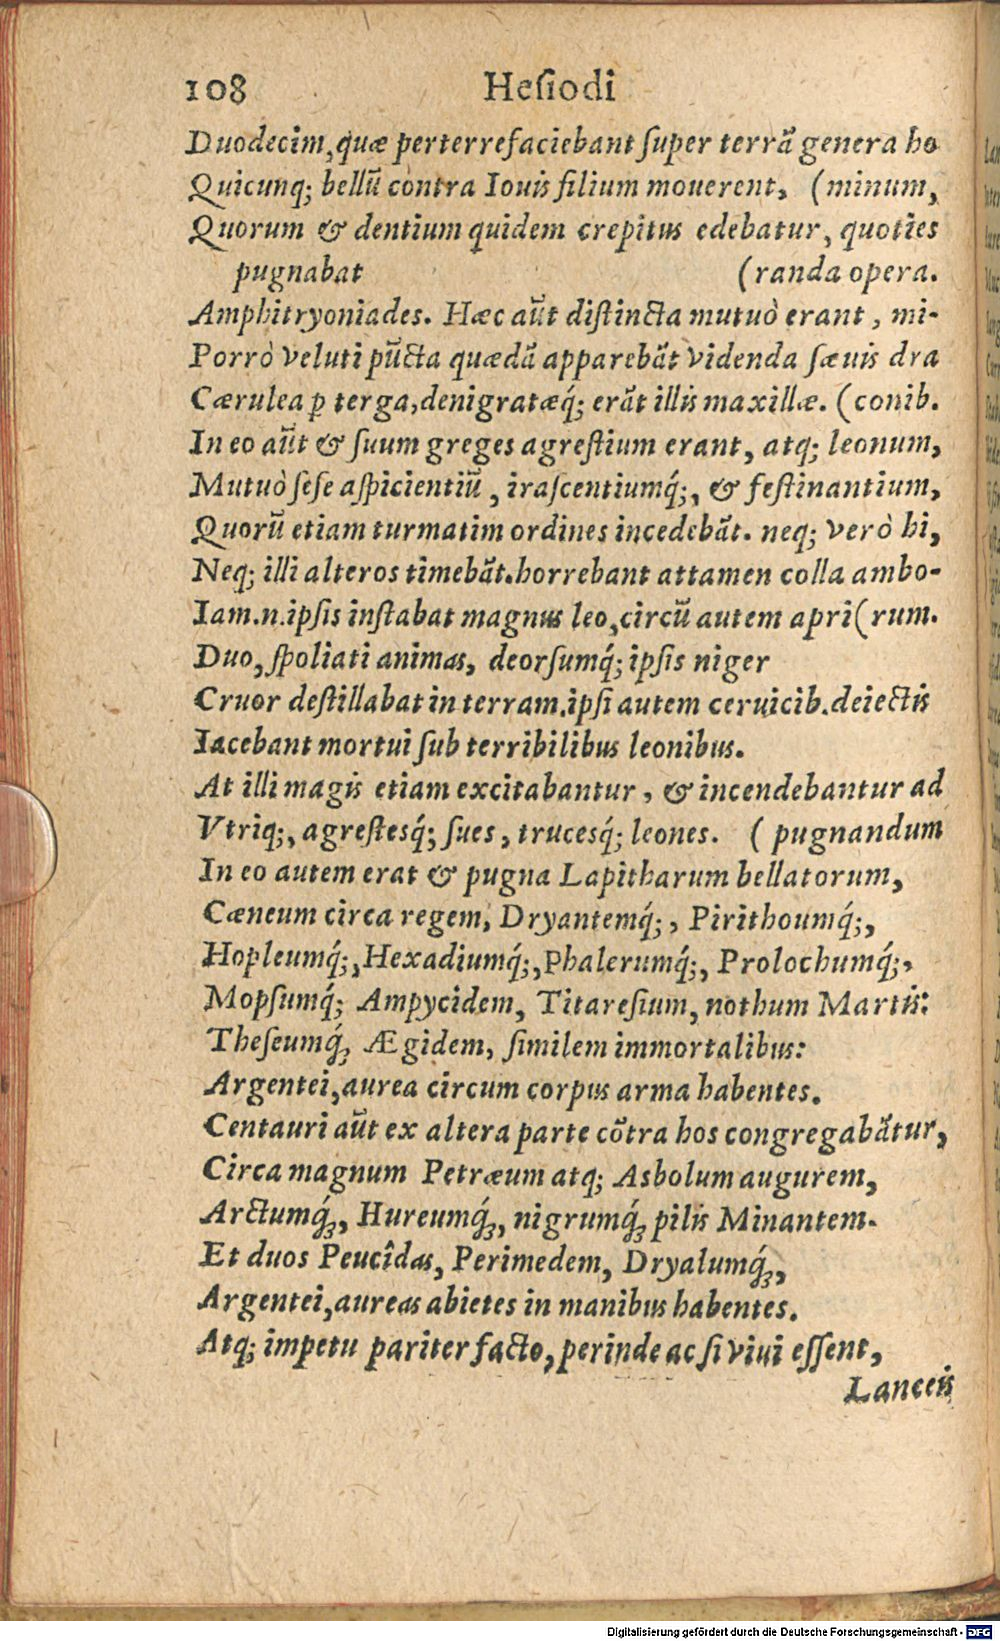 108 Heſiodi
Duodecim, quæ perterrefaciebant ſuper terrã genera ho
Quicunq; bellũ contra Iouis filium mouerent, (minum,
Quorum & dentium quidem crepitus edebatur, quoties
pugnabat (randa opera.
Amphitryoniades. Hæc aũt diſtincta mutuò erant, mi-
Porrò veluti pũcta quædã apparebãt videnda ſæuis dra
Cærulea ꝑ terga, denigratæq́; erãt illis maxillæ. (conib.
In eo aũt & ſuum greges agreſtium erant, atq; leonum,
Mutuò ſeſe aſpicientiũ, iraſcentiumq́;, & feſtinantium,
Quorũ etiam turmatim ordines incedebãt. neq; verò hi,
Neq; illi alteros timebãt. horrebant attamen colla ambo-
Iam.n. ipſis inſtabat magnus leo, circũ autem apri (rum.
Duo, ſpoliati animas, deorſumq́; ipſis niger
Cruor deſtillabat in terram. ipſi autem ceruicib. deiectis
Iacebant mortui ſub terribilibus leonibus.
At illi magis etiam excitabantur, & incendebantur ad
Vtriq;, agreſtesq́; ſues, trucesq́; leones. (pugnandum
In eo autem erat & pugna Lapitharum bellatorum,
Cæneum circa regem, Dryantemq́;, Pirithoumq́;,
Hopleumq́;, Hexadiumq́;, Phalerumq́;, Prolochumq́;,
Mopſumq́; Ampycidem, Titareſium, nothum Martis:
Theſeumq́; Ægidem, ſimilem immortalibus:
Argentei, aurea circum corpus arma habentes.
Centauri aũt ex altera parte cõtra hos congregabãtur,
Circa magnum Petræum atq; Asbolum augurem,
Arctumq́;, Hureumq́;, nigrumq́; pilis Minantem.
Et duos Peucîdas, Perimedem, Dryalumq́;,
Argentei, aureas abietes in manibus habentes.
Atq; impetu pariter facto, perinde ac ſi viui eſſent,
Lanceis
Digitalisierung gefördert durch die Deutsche Forschungsgemeinschaft - DFG